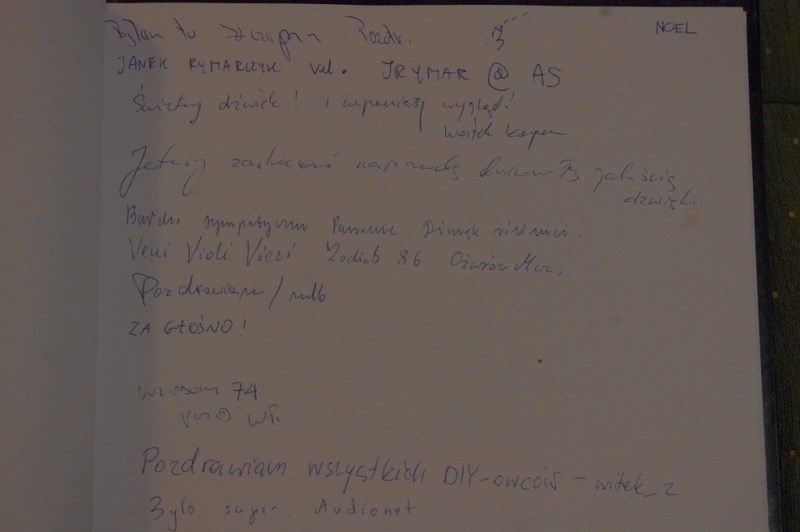 NOEL
Byłem tu Pozdr.
JANEK RYMARCZYK vel. JRYMAR @ AS
Świetny dźwięk! i wspaniały wygląd!
Jesteśmy zaskoczeni naprawdę doskonałą jakością
dźwięku.
Bardzo sympatyczni Panowie. Dźwięk również.
Veni Vidi Vici Zodiak 86 Ożarów Maz.
Pozdrawiam / mlb
ZA GŁOŚNO!
74
Pozdrawiam wszystkich DIY-owców - witek_z
Było super Audionet